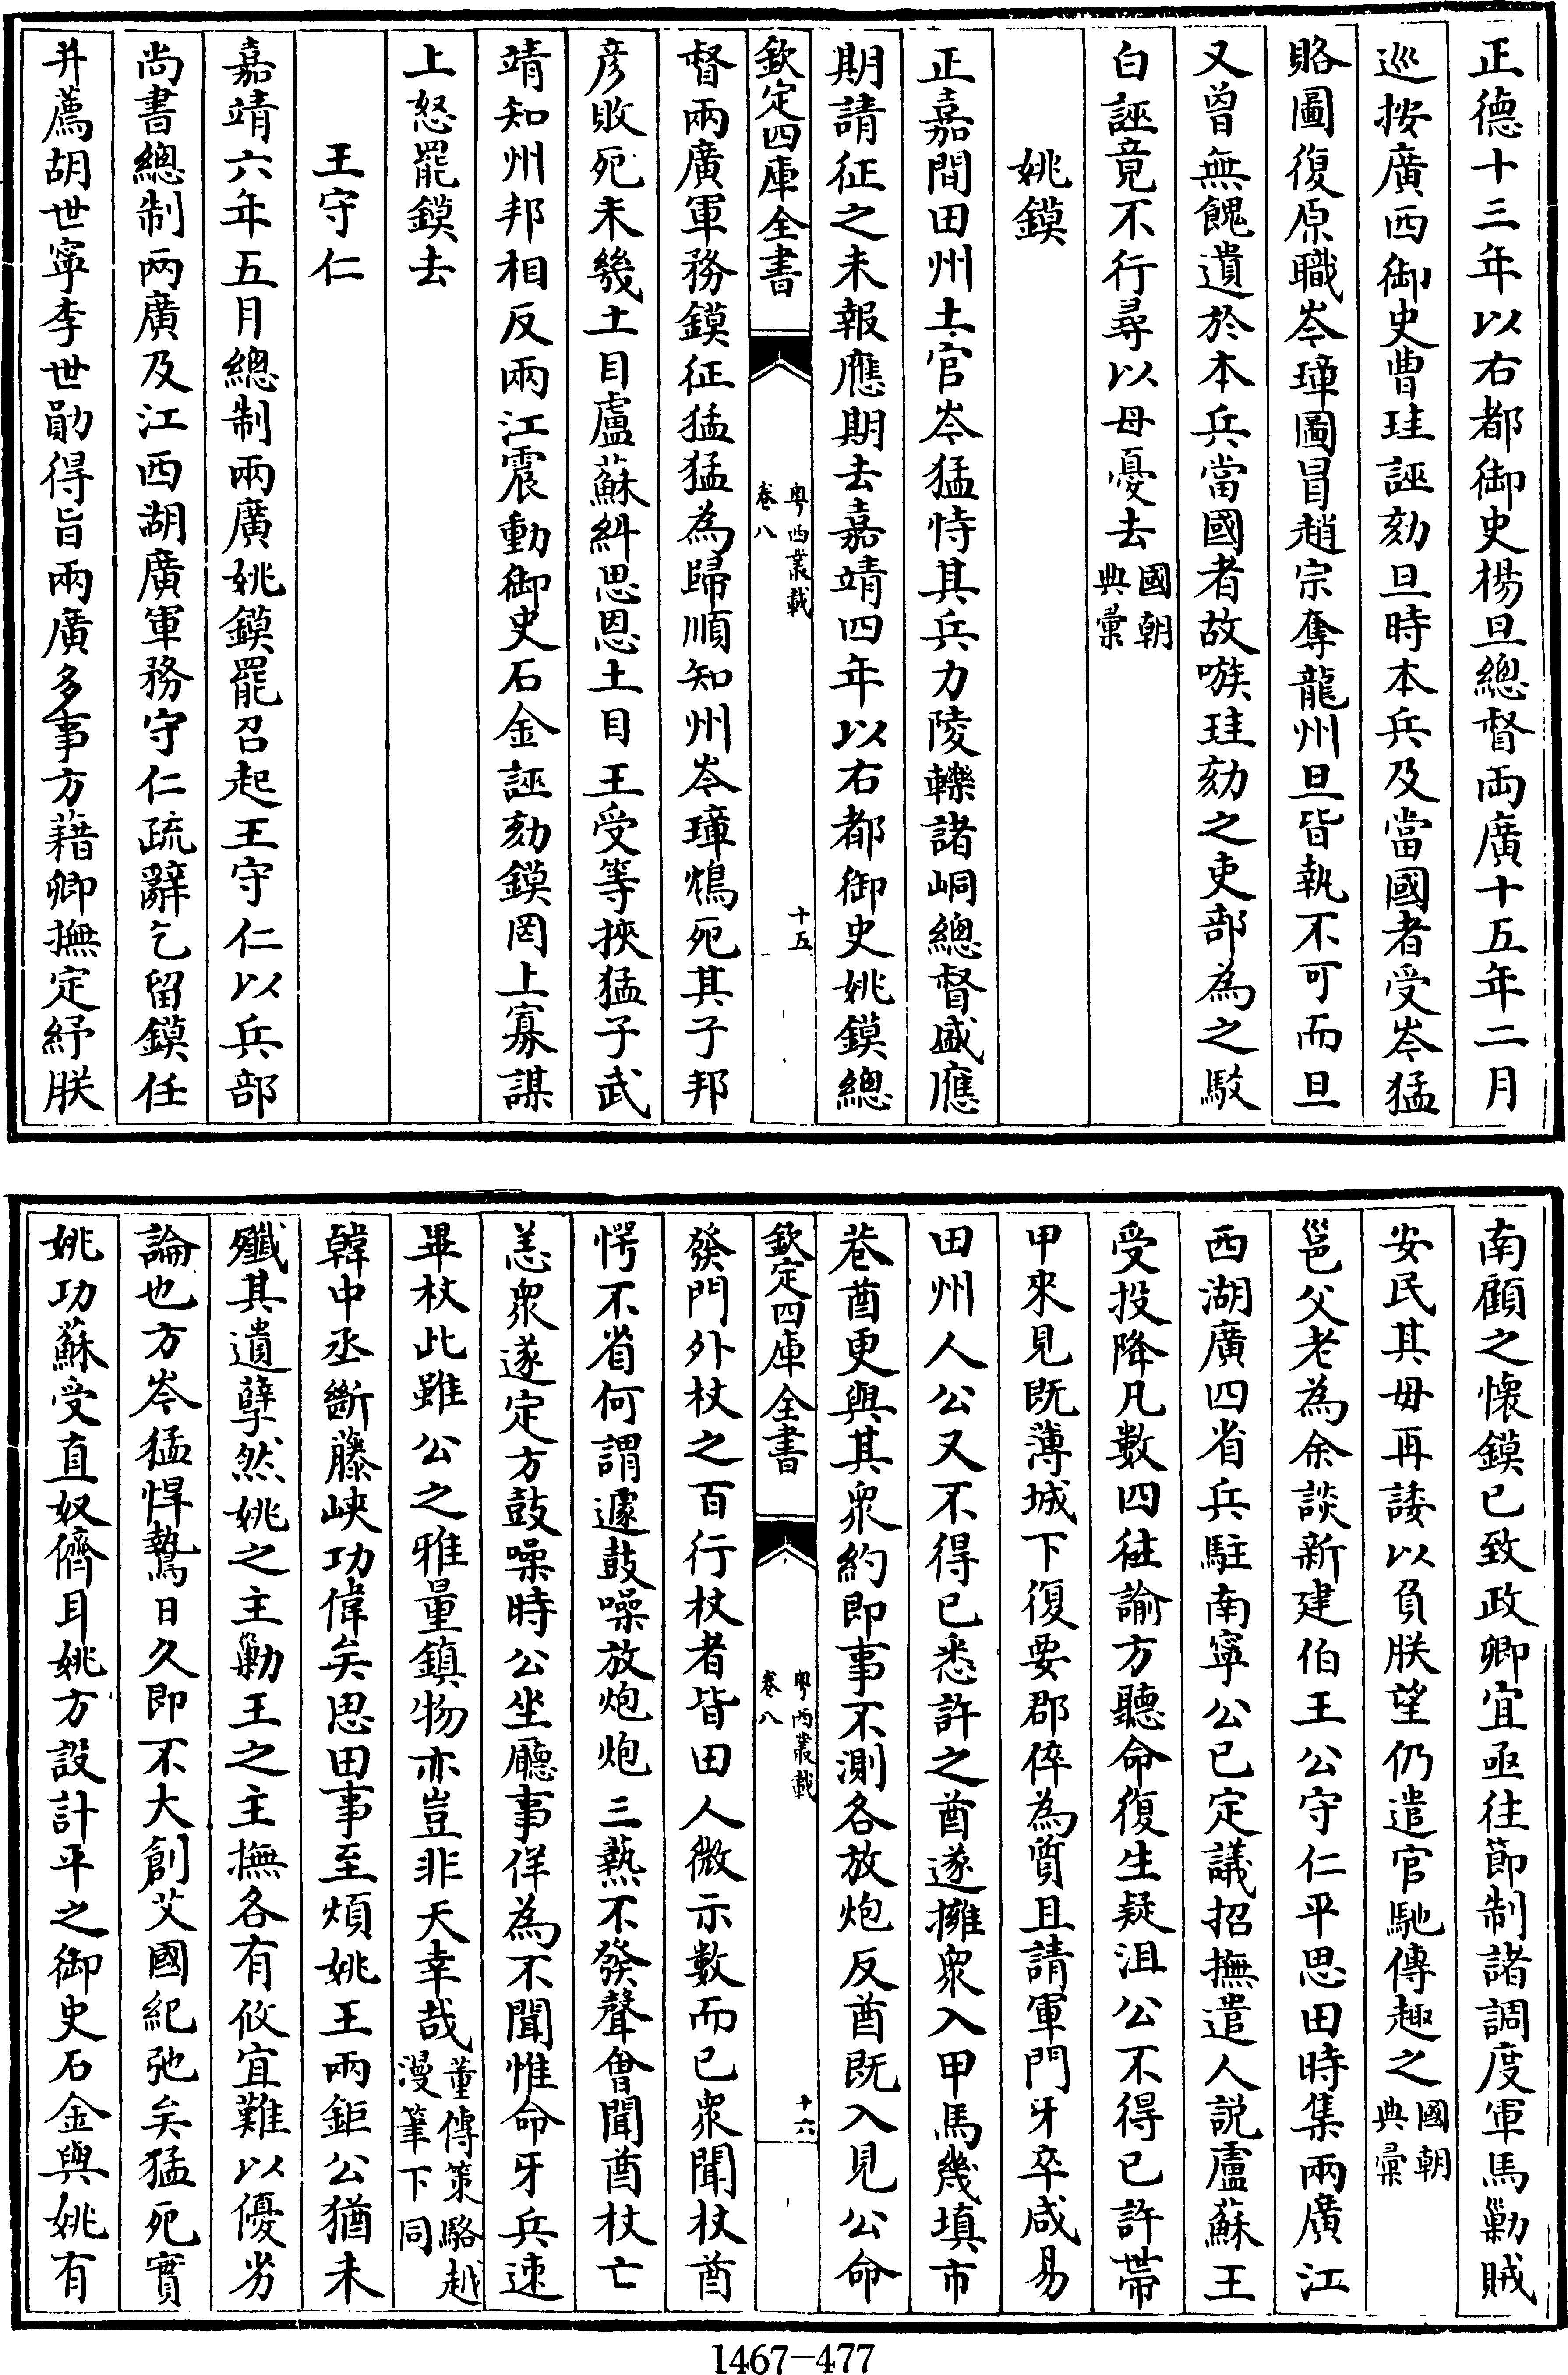 正德十三年以右都御史楊旦總督兩廣十五年二月
巡按廣西御史曹珪誣劾旦時本兵及當國者受岑猛
賂圖復原職岑璋圖冒趙宗奪龍州旦皆執不可而旦
又曾無餽遺於本兵當國者故嗾珪劾之吏部為之駁
白誣竟不行尋以母憂去國朝典彙
姚鏌
正嘉間田州土官岑猛恃其兵力陵轢諸峒總督盛應
期請征之未報應期去嘉靖四年以右都御史姚鏌總
欽定四庫全書
粵西叢載
卷八
十五
督兩廣軍務鏌征猛猛為歸順知州岑璋鴆死其子邦
彦敗死未幾土目盧蘇糾思恩土目王受等挾猛子武
靖知州邦相反兩江震動御史石金誣劾鏌罔上寡謀
上怒罷鏌去
王守仁
嘉靖六年五月總制兩廣姚鏌罷召起王守仁以兵部
尚書總制兩廣及江西湖廣軍務守仁疏辭乞留鏌任
并薦胡世寧李世勛得旨兩廣多事方藉卿撫定紓朕
南顧之懷鏌已致政卿宜亟往節制諸調度軍馬勦賊
安民其毋再諉以負朕望仍遣官馳傳趣之國朝典彙
邕父老為余談新建伯王公守仁平思田時集兩廣江
西湖廣四省兵駐南寧公已定議招撫遣人説盧蘇王
受投降凡數四往諭方聽命復生疑沮公不得已許帶
甲來見既薄城下復要郡倅為質且請軍門牙卒咸易
田州人公又不得已悉許之酋遂擁衆入甲馬幾填市
巷酋更與其衆約即事不測各放炮反酋既入見公命
欽定四庫全書
粵西叢載
卷八
十六
發門外杖之百行杖者皆田人微示數而已衆聞杖酋
愕不省何謂遽鼓噪放炮炮三爇不發聲會聞酋杖亡
恙衆遂定方鼓噪時公坐廳事佯為不聞惟命牙兵速
畢杖此雖公之雅量鎮物亦豈非天幸哉董傳策駱越漫筆下同
韓中丞斷藤峽功偉矣思田事至煩姚王兩鉅公猶未
殲其遺孽然姚之主勦王之主撫各有攸宜難以優劣
論也方岑猛悍鷙日久即不大創艾國紀弛矣猛死實
姚功蘇受直奴儕耳姚方設計平之御史石金與姚有
1467—477